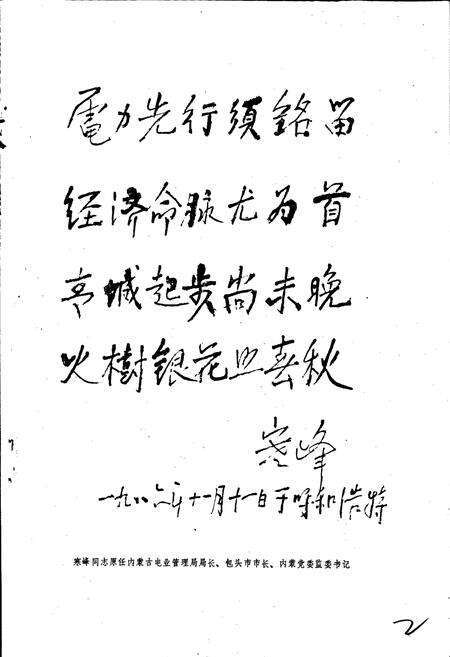 電力先行須銘留
经济命脉尤为首
京城起步尚未晚
火樹銀花照春秋
寒峰
一九八六年十一月十一日于呼和浩特
寒峰同志原任内蒙古电业管理局局长、包头市市长、内蒙党委监委书记
2